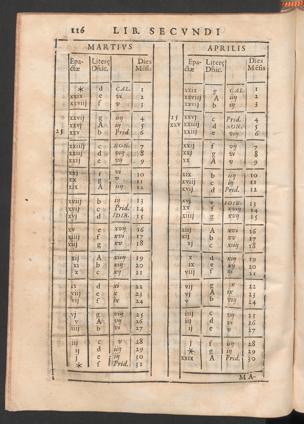 116 LIB. SECVNDI
MARTIVS
Epactæ Literę Dñic. Dies Mẽsis
* d CAL. 1
xxix e vi 2
xxviij f v 3
xxvij g iiij 4
xxvj A iij 5
25 xxv b Prid. 6
xxiiij c NON. 7
xxiij d viij 8
xxij e vij 9
xxj f vj 10
xx g v 11
xix A iiij 12
xviij b iij 13
xvij c Prid. 14
xvj d IDIB. 15
xv e xvij 16
xiiij f xvi 17
xiij g xv 18
xij A xiiij 19
xj b xiij 20
x c xij 21
ix d xi 22
viij e x 23
vij f ix 24
vj g viij 25
v A vij 26
iiij b vi 27
iij c v 28
ij d iiij 29
j e iij 30
* f Prid. 31
APRILIS
Epactæ Literę Dñic. Dies Mẽsis
xxix g CAL. 1
xxviij A iiij 2
xxvij b iij 3
25 xxvj c Prid. 4
xxv d NON. 5
xxiiij e viij 6
xxiij f vij 7
xxij g vi 8
xxj A v 9
xx b iiij 10
xix c iij 11
xviij d Prid. 12
xvij e IDIB. 13
xvj f xviij 14
xv g xvij 15
xiiij A xvi 16
xiij b xv 17
xij c xiiij 18
xj d xiij 19
x e xij 20
ix f xi 21
viij g x 22
vij A ix 23
vj b viij 24
v c vij 25
iiij d vi 26
iij e v 27
ij f iiij 28
* g iij 29
xxix A Prid. 30
MA-